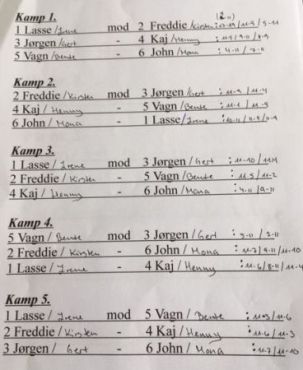 Kamp 1.
1 Lasse / Irene mod 2 Freddie / Kirsten
3 Jørgen / Gert - 4 Kaj / Henny
5 Vagn / Bente - 6 John / Mona : 4-11 / 7-11
Kamp 2.
2 Freddie / Kirsten mod 3 Jørgen / Gert
4 Kaj / Henny - 5 Vagn / Bente
6 John / Mona - 1 Lasse / Irene
Kamp 3.
1 Lasse / Irene mod 3 Jørgen / Gert
2 Freddie / Kirsten - 5 Vagn / Bente : 11-5 / 11-2
4 Kaj / Henny - 6 John / Mona : 4-11 / 9-11
Kamp 4.
5 Vagn / Bente mod 3 Jørgen / Gert
2 Freddie / Kirsten - 6 John / Mona : 11-7 / 9-11 / 11-10
1 Lasse / Irene - 4 Kaj / Henny : 11-6 / 8-11 / 11-4
Kamp 5.
1 Lasse / Irene mod 5 Vagn / Bente : 11-3 / 11-6
2 Freddie / Kirsten - 4 Kaj / Henny : 11-6 / 11-3
3 Jørgen / Gert - 6 John / Mona : 11-7 / 11-10